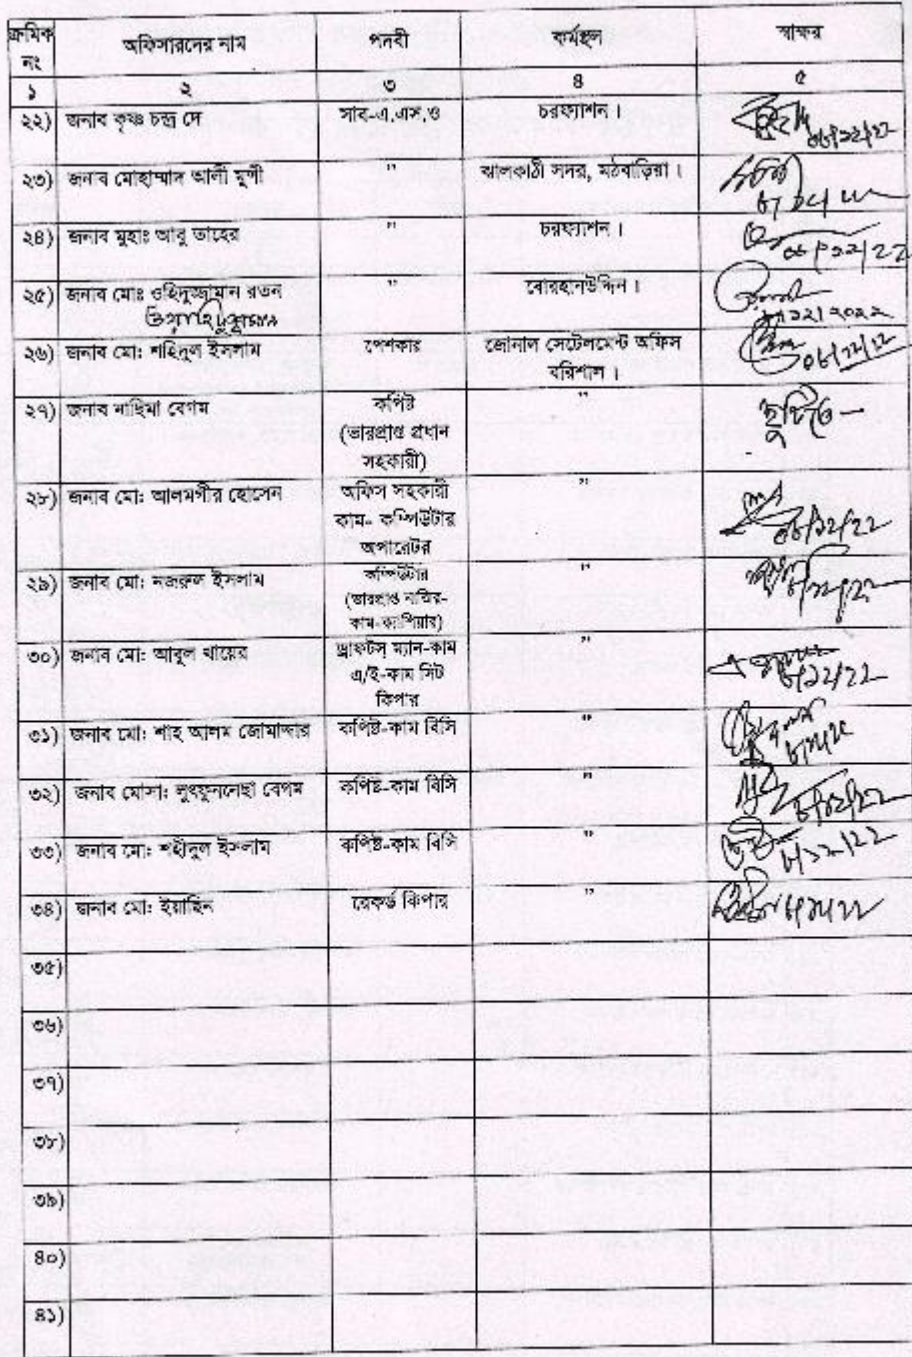 ক্রমিক নং	অফিসারদের নাম	পদবী	কর্মস্থল	স্বাক্ষর
১	২	৩	৪	৫
২২)	জনাব কৃষ্ণ চন্দ্র দে	সাব-এ.এস.ও	চরফ্যাশন।	০৮/১২/২২
২৩)	জনাব মোহাম্মাদ আলী মুন্সী	"	ঝালকাঠী সদর, মঠবাড়িয়া।
২৪)	জনাব মুহাঃ আবু তাহের	"	চরফ্যাশন।	০৮/১২/২২
২৫)	জনাব মোঃ ওহিদুজ্জামান রতন	"	বোরহানউদ্দিন।
২৬)	জনাব মো: শহিদুল ইসলাম	পেশকার	জোনাল সেটেলমেন্ট অফিস
বরিশাল।
২৭)	জনাব নাছিমা বেগম	কপিষ্ট	"	ছুটিতে-
(ভারপ্রাপ্ত প্রধান
সহকারী)
২৮)	জনাব মো: আলমগীর হোসেন	অফিস সহকারী	"	০৮/১২/২২
কাম- কম্পিউটার
অপারেটর
২৯)	জনাব মো: নজরুল ইসলাম	কম্পিউটার	"
(ভারপ্রাপ্ত নাজির-
কাম-ক্যাশিয়ার)
৩০)	জনাব মো: আবুল খায়ের	ড্রাফটস্ ম্যান-কাম	"	৮/১২/২২
এ/ই-কাম সিট
কিপার
৩১)	জনাব মো: শাহ আলম জোমাদ্দার	কপিষ্ট-কাম বিসি	"
৩২)	জনাব মোসা: লুৎফুননেছা বেগম	কপিষ্ট-কাম বিসি	"	৮/১২/২২
৩৩)	জনাব মো: শহীদুল ইসলাম	কপিষ্ট-কাম বিসি	"	৮/১২/২২
৩৪)	জনাব মো: ইয়াছিন	রেকর্ড কিপার	"
৩৫)
৩৬)
৩৭)
৩৮)
৩৯)
৪০)
৪১)